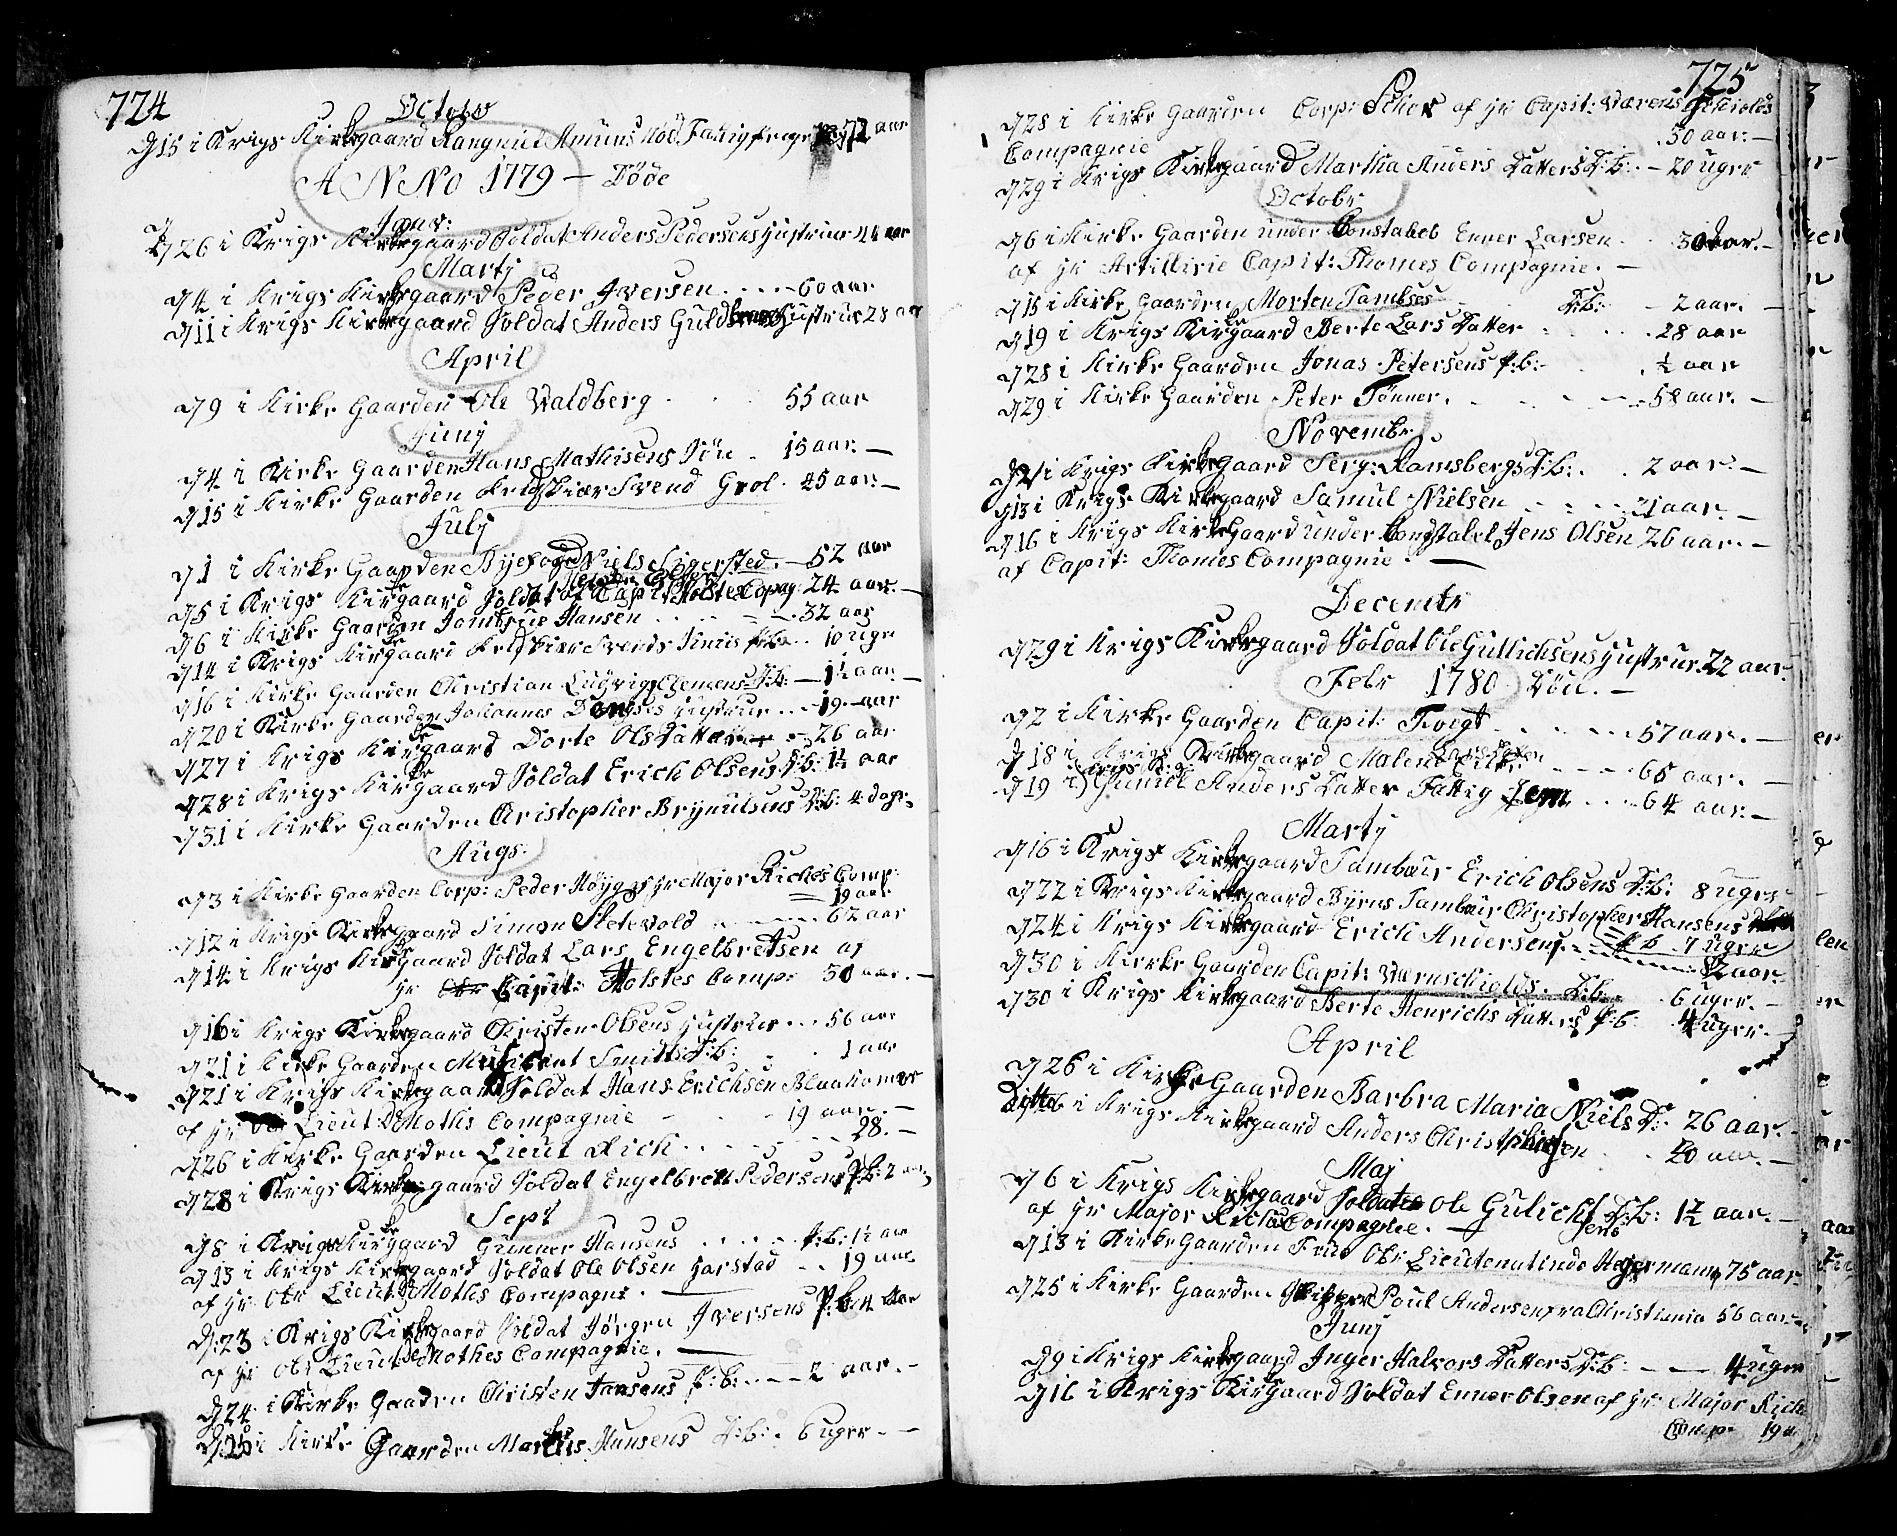 724
October
d 15 i Krigs Kirkegaard Rangniel Amuns Fattig 72 aar
ANNO 1779 – Döde
Janv:
d 26 i Krigs Kirkegaard Soldat Anders Pedersens Hustrue 44 aar
Martj
d 4 i Krigs Kirkegaard Peder Iversen . . . . 60 aar
d 11 i Krigs Kirkegaard Soldat Anders Hustrue 28 aar
April
d 9 i Kirke Gaarden Ole Waldberg . . . 55 aar
Junij
d 4 i Kirke Gaarden Hans Mathisens Sön . 15 aar. —
d 15 i Kirke Gaarden Feldskier Svend Grol . 45 aar. —
Julij
d 1 i Kirke Gaarden Byefoged Niels Seigersted . — 52 aar
d 5 i Krigs Kirkegaard Soldat af Capit Holstes Compag: 24 aar. —
d 6 i Kirke Gaarden Hansen . . . . 32 aar
d 14 i Krigs Kirkegaard Feldskier Svends . . 10 uger
d 16 i Kirke Gaarden Christian Ludvig Clemens D:b: — 1½ aar
d 20 i Kirke Gaarden Johannes Hustrue . . . 19 aar
d 27 i Krigs Kirkegaard Dorte Ols Datter — 26 aar
d 28 i Krigs Kirkegaard Soldat Erich Olsens D:b: 1½ aar
d 31 i Kirke Gaarden Christopher Brynnulsens D:b: 4 dage
Augs:
d 3 i Kirke Gaarden Corp: Peder Höyg af Hr Major Riches Comp:
19 aar
d 12 i Krigs Kirkegaard Simon Sletevold . . . . 62 aar
d 14 i Krigs Kirkegaard Soldat Lars Engelbretsen af
Hr Capit: Holstes Comp: 30 aar. —
d 16 i Krigs Kirkegaard Christen Olsens Hustrue . . . 56 aar
d 21 i Kirke Gaarden Musicant Smitts D:b: . . 1 aar
d 21 i Krigs Kirkegaard Soldat Hans Erichsen
af Hr Lieut D Moths Compagnie - - - 19 aar. —
d 26 i Kirke Gaarden Lieut Rich . . . . . 28. —
d 28 i Krigs Kirkegaard Soldat Engelbrett Pedersens P:b: 2 aar
Sept
d 8 i Krigs Kirkegaard Gunner Hansens . . . . P:b: 1½ aar
d 13 i Krigs Kirkegaard Soldat Ole Olsen Harstad . . 19 aar
af Hr Obr Lieut D Moths Compagni . —
d. 23 i Krigs Kirkegaard Soldat Jörgen Iversens P:b: 4 aar
af Hr Obr Lieut de Mothes Compagnie. —
d 24 i Kirke Gaarden Christen Jansens P:b: . . . 2 aar. —
d 25 i Kirke Gaarden Hansens D:b: . 6 uger. —
725
d 28 i Kirke Gaarden Corp: af Hr Capit: Wærenschiolds
Compagnie .50 aar. —
d 29 i Krigs Kirkegaard Martha Anders Datters D:b: — 20 uger
Octobr
d 6 i Kirke Gaarden under Constabel Enner Larsen . . 30 aar. —
af Hr Artillirie Capit: Thomes Compagnie . —
d 15 i Kirke Gaarden Morten Tambses D:b: — 2 aar.
d 19 i Krigs Kirkegaard Berte Lars Datter . . . 28 aar
d 28 i Kirke Gaarden Jonas Petersens P:b: . ½ aar
d 29 i Kirke Gaarden Peter Tönner . . . . 58 aar. —
Novembr
d 2 i Krigs Kirkegaard Serg: Ramsbergs D:b: . . 2 aar. —
d 13 i Krigs Kirkegaard Samul Nielsen . . . 21 aar. —
d 16 i Krigs Kirkegaard under Constabel Jens Olsen 26 aar. —
af Capit: Thomes Compagnie . —
Decembr
d 29 i Krigs Kirkegaard Soldat Ole Gullichsens Hustrue. 22 aar.
Febr 1780. Döde. —
d 2 i Kirke Gaarden Capit: Foigt . . . . 57 aar. —
d 18 i Krigs Kirkegaard Malene Lars Datter . . . 65 aar. —
Krigs K:g
d 19 i Guniel Anders Datter Fattig Lem . . . 64 aar. —
Martj
d 16 i Krigs Kirkegaard Tambur Erich Olsens D:b: 8 uger
d 22 i Krigs Kirkegaard Byens Tambur Christopher Hansens
P b 7 uger
d 24 i Krigs Kirkegaard Erich Andersen . . . . 82 aar.
d 30 i Kirke Gaarden Capit: Wærnschiolds. D:b: . 6 uger. —
d 30 i Krigs Kirkegaard Berte Henrichs Datters P:b: 4 uger. —
April
d 26 i Kirke Gaarden Barbra Maria Niels D: 26 aar. —
Ditto i Krigs Kirkegaard Anders Christophersen . . 20 aar. —
Maj
d 6 i Krigs Kirkegaard Soldat Ole Gulichsens D:b: 1½ aar. —
af Hr Major Riches Compagnie. —
d 13 i Kirke Gaarden Frue Obr Lieutenatinde Hegermann 75 aar
d 25 i Kirke Gaarden Skipper Poul Andersen fra Christiania 56 aar. —
Junj
d 9 i Krigs Kirkegaard Inger Halvors Datters D:b: — — 4 uger
d 16 i Krigs Kirkegaard Soldat Enner Olsen af Hr Major Rich
Comp: 19 a